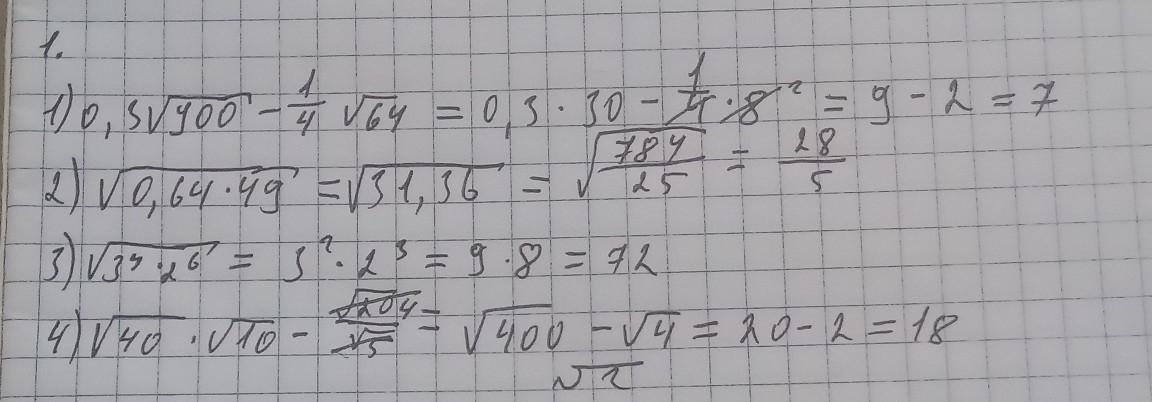 1.
1) 0,3√900 - 1/4 √64 = 0,3 · 30 - 1/4 · 8 ² = 9 - 2 = 7
2) √0,64·49 = √31,36 = √784/25 = 28/5
3) √3⁴·2⁶ = 3² · 2³ = 9 · 8 = 72
4) √40 · √10 - √20 4/√5 = √400 - √4 = 20 - 2 = 18
√2